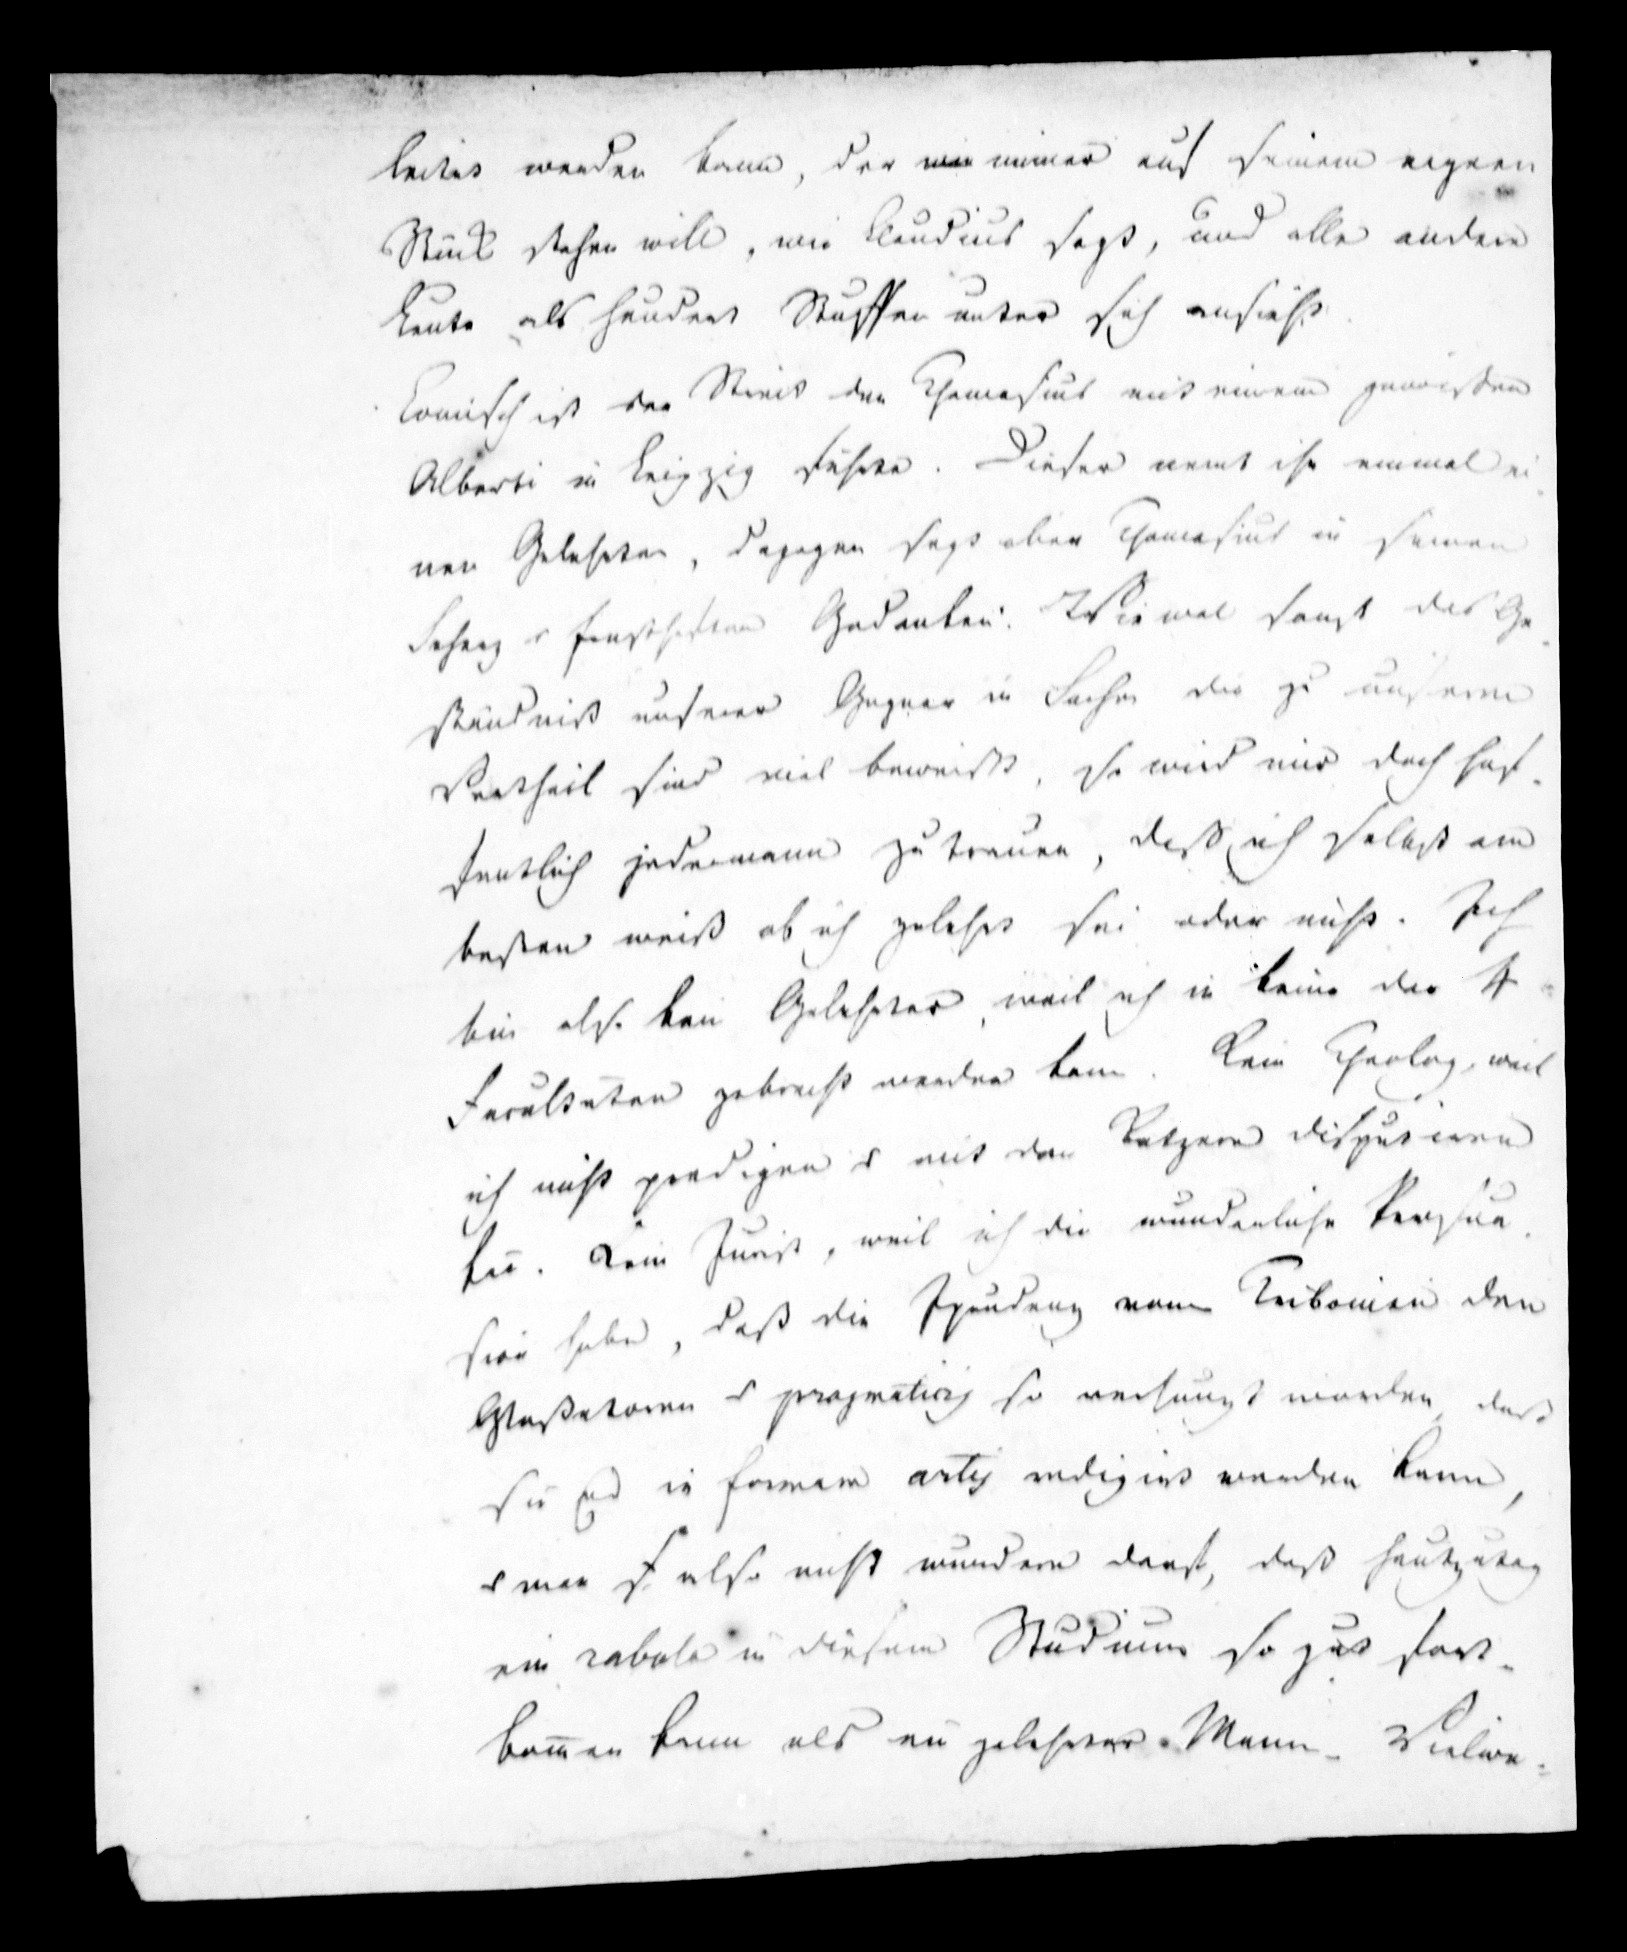 leitet werden kann, der immer auf seinem eignen
Stück stehen will, wie Claudius sagt, und alle andere
Leute als hundert Stuffen unter sich ansieht.
Komisch ist der Streit den Thomasius mit einem gewissen
Alberti in Leipzig führte. Dieser nent ihn einmal ei-
nen Gelehrten, dagegen sagt aber Thomasius in seinen
Scherz & Ernsthaften Gedanken: Wiewol sonst das Ge-
ständniß unserer Gegner in Sachen die zu unserm
Vortheil sind viel beweißt, so wird mir doch hof-
fentlich jedermann zutrauen, daß ich selbst am
besten weiß ob ich gelehrt sei oder nicht. Ich
bin also kein Gelehrter, weil ich in keine der 4
Facultäten gebracht werden kann. Kein Theolog, weil
ich nicht predigen & mit den Ketzern disputieren
kañ. Kein Jurist, weil ich die wunderliche Persua-
sion habe, daß die Jprudenz vom Tribonian den
Glossatoren & pragmaticis so verhunzt worden, daß
sie in formam artis redigirt werden kann,
& man s. also nicht wundern darf, daß heutzutag
ein rabula in diesem Studium so gut fort-
kom̄en kann als ein gelehrter Mann.